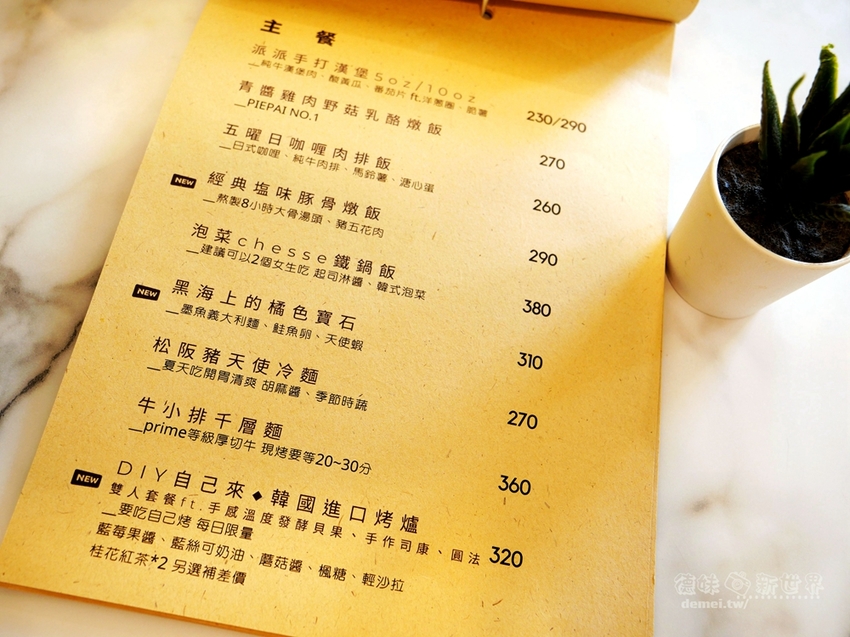 主餐
派派手打漢堡5oz/10oz 230/290
__純牛漢堡肉、酸黃瓜、番茄片 ft.洋蔥圈、脆薯
青醬雞肉野菇乳酪燉飯 270
__PIEPAI NO.1
五曜日咖哩肉排飯 260
__日式咖哩、純牛肉排、馬鈴薯、溏心蛋
NEW 經典塩味豚骨燉飯 290
__熬製8小時大骨湯頭、豬五花肉
泡菜chesse鐵鍋飯 380
__建議可以2個女生吃 起司淋醬、韓式泡菜
NEW 黑海上的橘色寶石 310
__墨魚義大利麵、鮭魚卵、天使蝦
松阪豬天使冷麵 270
__夏天吃開胃清爽 胡麻醬、季節時蔬
牛小排千層麵 360
__prime等級厚切牛 現烤要等20~30分
NEW DIY自己來◆韓國進口烤爐
雙人套餐ft.手感溫度發酵貝果、手作司康、圓法 320
__要吃自己烤 每日限量
藍莓果醬、藍絲可奶油、蘑菇醬、楓糖、輕沙拉
桂花紅茶*2 另選補差價
德味新世界
demei.tw/